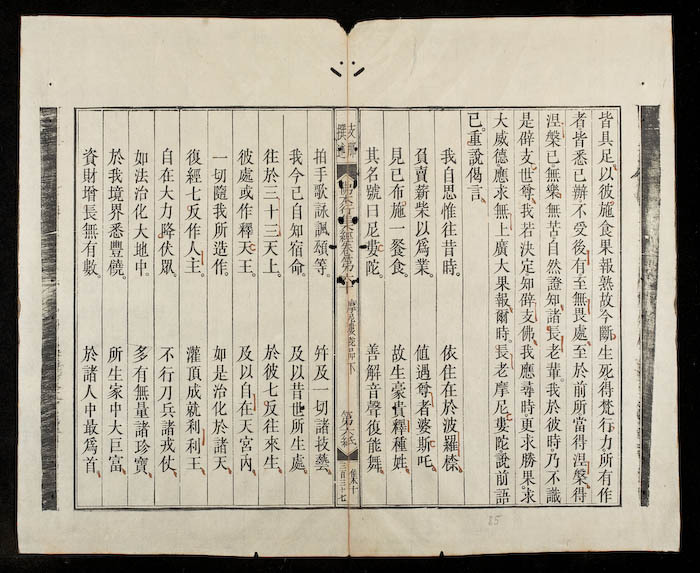 皆具足以彼施食果報熟故今斷生死得梵行力所有作
者皆悉已辦不受後有至無畏處至於前所當得涅槃得
涅槃已無樂無苦自然證知諸長老輩我於彼時乃不識
是辟支世尊我若決定知辟支佛我應尋時更求勝果求
大威德應求無上廣大果報爾時長老摩尼婁陀說前語
已。重說偈言。
我自思惟往昔時。 依住在於波羅㮈。
負賣薪柴以爲業。 值遇尊者婆斯吒
見已布施一餐食。 故生豪貴釋種姓
其名號曰尼婁陀。 善解音聲復能舞。
支那撰述 佛本行集經卷第六十 摩尼婁陀品下 第六紙 三百三十七
拍手歌詠諷頌等。 幷及一切諸技藝。
我今已自知宿命。 及以昔世所生處。
往於三十三天上。 於彼七反往來生。
彼處或作釋天王。 及以自在天宮內。
一切隨我所造作。 如是治化於諸天。
復經七反作人主。 灌頂成就刹利王。
自在大力降伏眾。 不行刀兵諸戎仗。
如法治化大地中。 多有無量諸珍寶。
於我境界悉豐饒。 所生家中大巨富
資財增長無有數。 於諸人中最爲首。
85